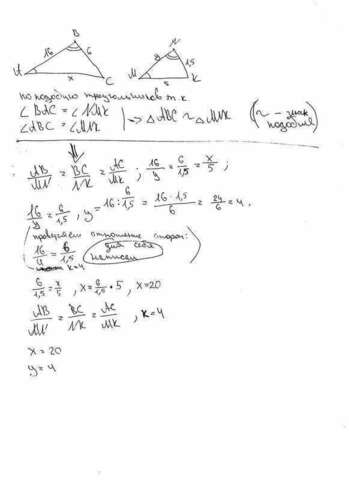 B
16
6
A
x
C
N
y
1,5
M
5
K
по подобию треугольников т.к
∠BAC = ∠NMK
∠ABC = ∠MNK
=> △ABC ~ △MNK
(~ – знак подобия)
AB/MN = BC/NK = AC/MK ; 16/y = 6/1,5 = x/5 ;
16/y = 6/1,5 , y = 16 : 6/1,5 = 16 · 1,5/6 = 24/6 = 4 .
проверяем отношение сторон:
16/4 = 6/1,5
для себя
написал
k=4
6/1,5 = x/5 , x = 6/1,5 · 5 , x=20
AB/MN = BC/NK = AC/MK , k=4
x = 20
y = 4